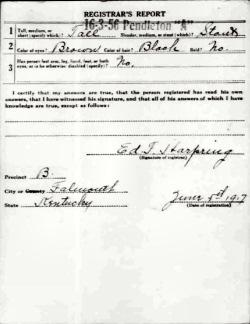 REGISTRAR'S REPORT
16-3-56 Pendleton "A"
1 Tall, medium, or short (specify which)? Tall Slender, medium, or stout (which)? Stout
2 Color of eyes? Brown Color of hair? Black Bald? No.
3 Has person lost arm, leg, hand, foot, or both eyes, or is he otherwise disabled (specify)? No.
I certify that my answers are true, that the person registered has read his own answers, that I have witnessed his signature, and that all of his answers of which I have knowledge are true, except as follows:
Ed T. Harpring
(Signature of registrar)
Precinct B.
City or County Falmouth
State Kentucky
June 5th 1917
(Date of registration)